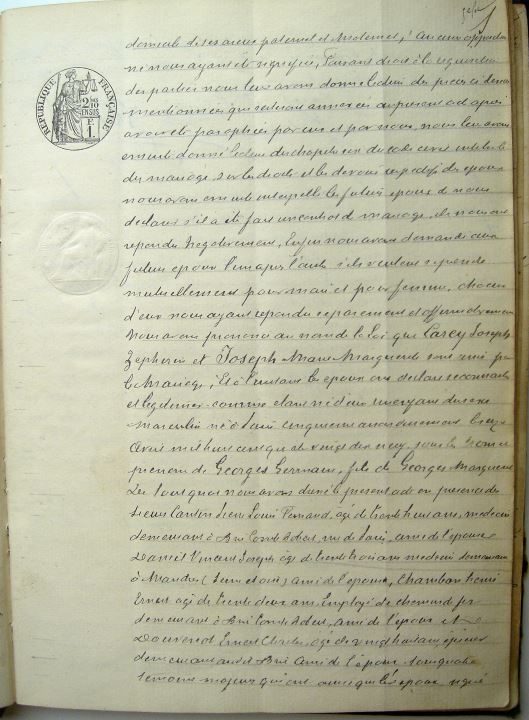 domicile de ses aïeux paternel et maternel; Aucune opposition
ne nous ayant été signifiée, Faisant droit à la réquisition
des parties nous leur avons donné lecture des pièces ci dessus
mentionnées qui resteront annexées au présent acte après
avoir été paraphées par eux et par nous, nous leur avons
ensuite donné lecture du chapitre six du code civil intitulé
du mariage, sur les droits et les devoirs respectifs des époux
nous avons ensuite interpellé les futurs époux de nous
déclarer s'il a été fait un contrat de mariage, ils nous ont
répondu négativement, Enfin nous avons demandé aux
futurs époux l'un après l'autre s'ils veulent se prendre
mutuellement pour mari et pour femme, chacun
d'eux nous ayant répondu séparément et affirmativement
Nous avons prononcé au nom de la Loi que Carey Joseph
Zéphirin et Joseph Marie Marguerite sont unis par
le Mariage, Et à l'instant les époux ont déclaré reconnaître
et légitimer comme étant né d'eux un enfant du sexe
masculin né à Paris cinquième arrondissement le onze
Avril mil huit cent quatre vingt dix neuf, sous les noms et
prénoms de Georges Germain, fils de Georges Marguerite
De tout quoi nous avons dressé le présent acte en présence de
Sieurs Louis Fernand, âgé de trente huit ans, médecin
demeurant à Brie Comte Robert, rue de Paris, ami de l'épouse
Daniel Vincent Joseph âgé de trente trois ans médecin demeurant
à Mandres (Seine et oise) ami de l'épouse, Chambon Henri
Ernest âgé de trente deux ans, Employé de chemin de fer
demeurant à Brie Comte Robert, ami de l'époux et
Ernest Charles, âgé de vingt huit ans, épicier
demeurant à Brie Ami de l'époux tous quatre
témoins majeurs qui ont ainsi que les époux signé
RÉPUBLIQUE FRANÇAISE
2/10 EN SUS
1 F